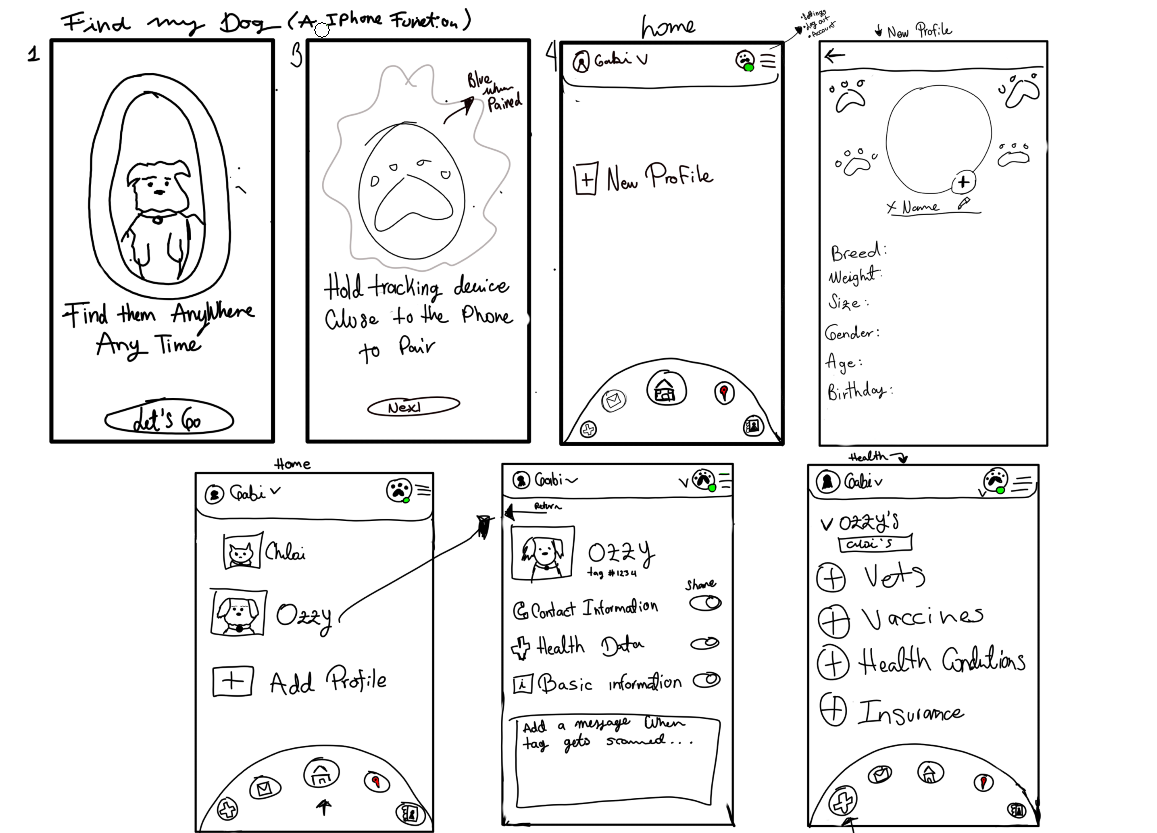 Find my Dog (A IPhone Function)
1
Find them AnyWhere
Any Time
Let's Go
3
Blue
when
Paired
Hold tracking device
Close to the Phone
to Pair
Next
home
4
Gabi
Settings
Log out
Account
+ New Profile
New Profile
+
x Name
Breed:
Weight:
Size:
Gender:
Age:
Birthday:
Home
Gabi
Chloi
Ozzy
+ Add Profile
Gabi
Return
Ozzy
tag #1234
Share
Contact Information
Health Data
i Basic information
Add a message When
tag gets scanned...
Health
Gabi
Ozzy's
Chloi's
+ Vets
+ Vaccines
+ Health Conditions
+ Insurance